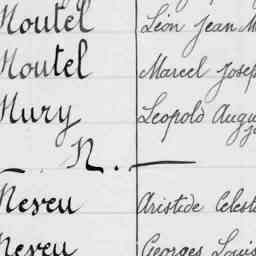 Moutel Léon Jean M
Moutel Marcel Josep
Mury Léopold Augu
N.
Neveu Aristide Célest
Neveu Georges Louis